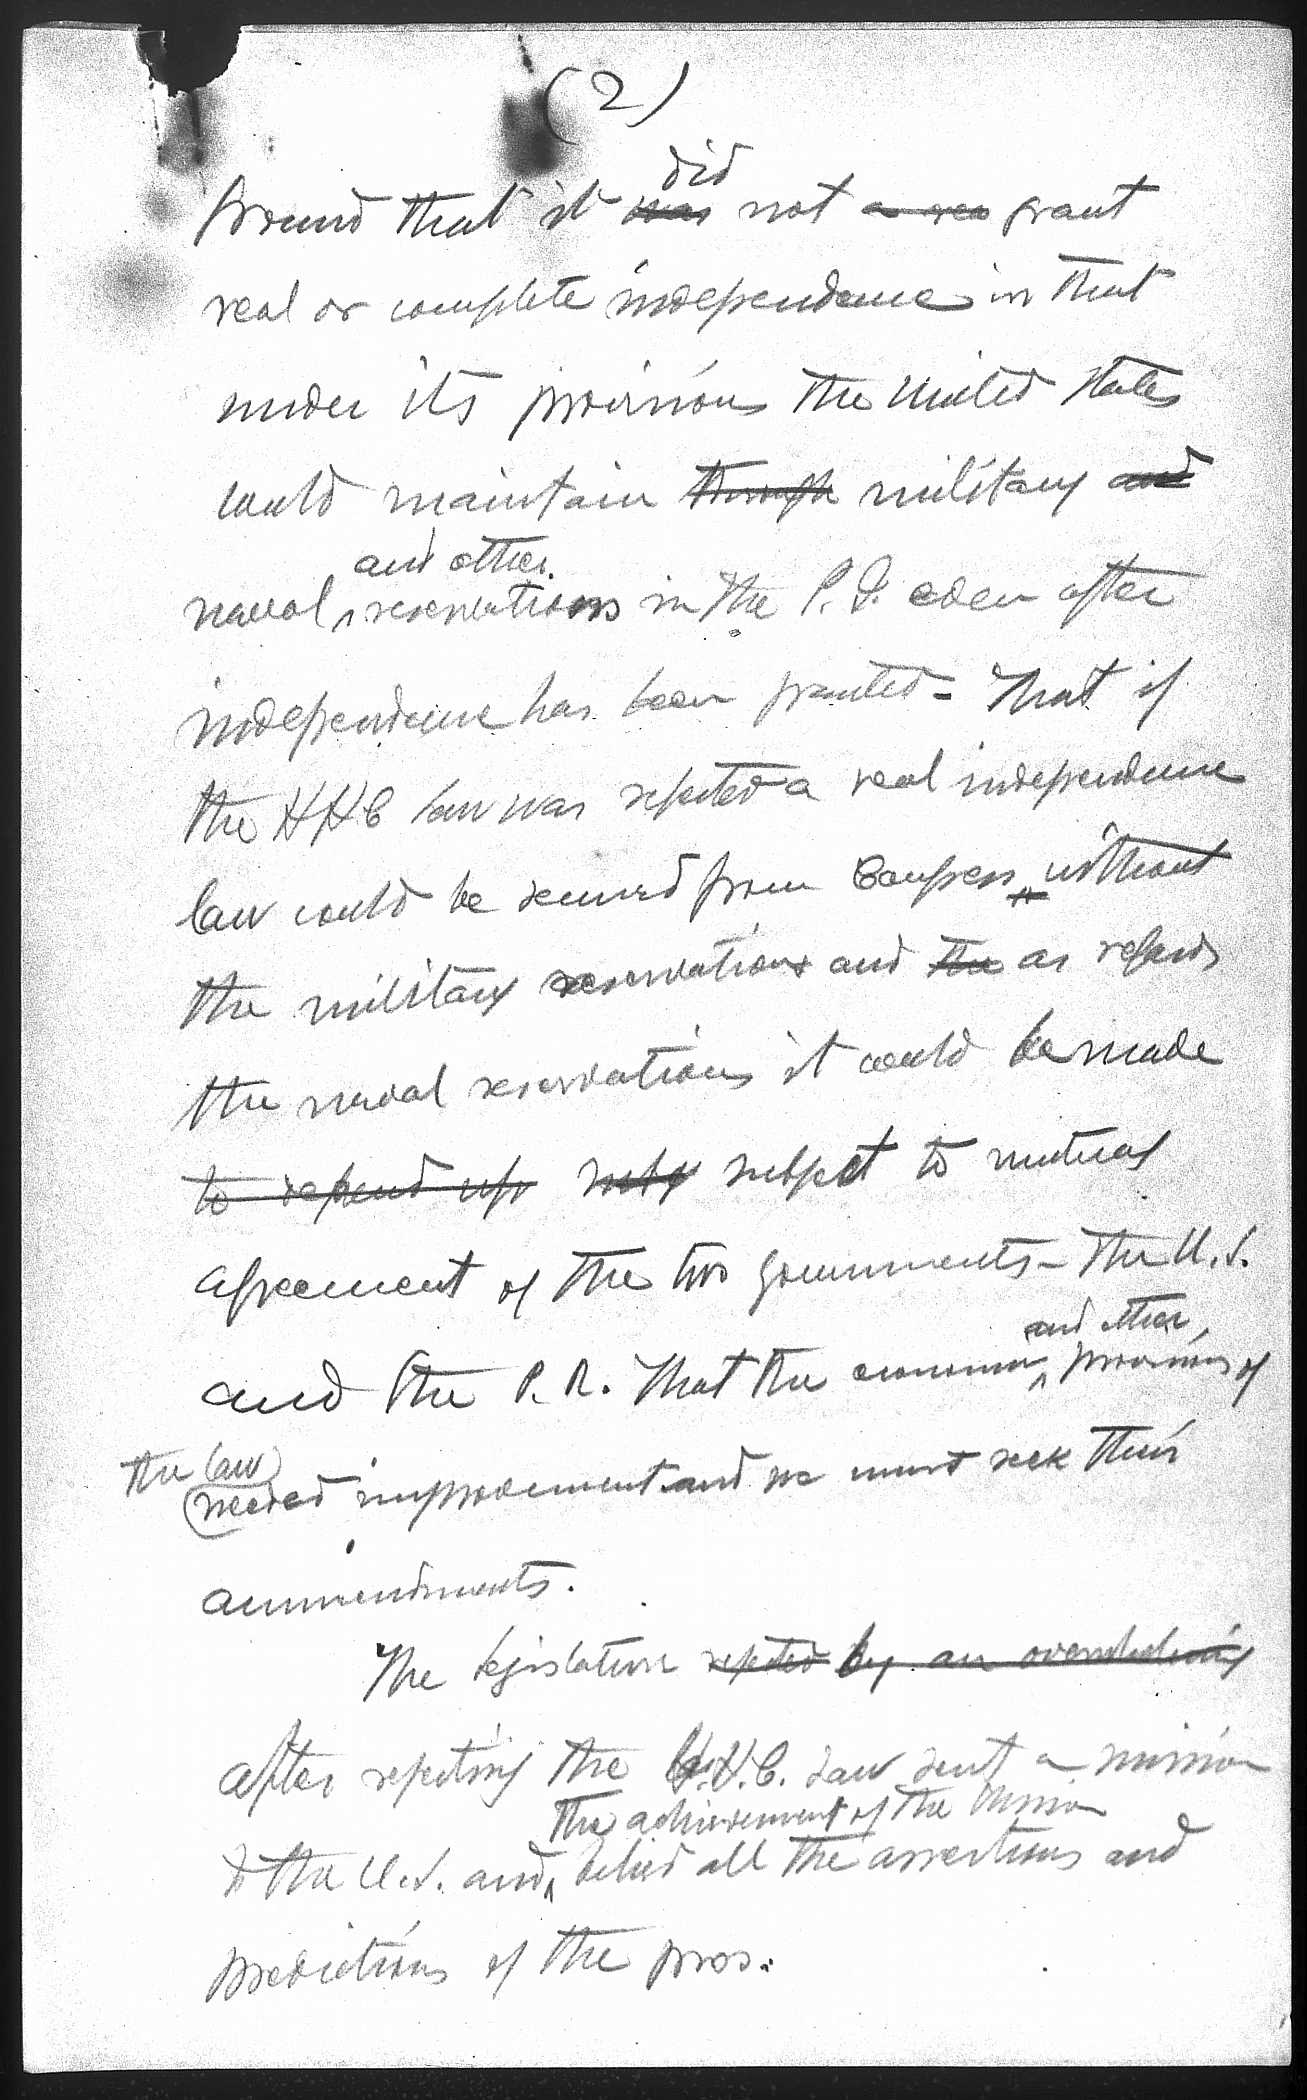 (2)
did
ground that it was not a rea grant
real or complete independence in that
under its provisions the United States
could maintain through military and
and other
naval reservations in the P.I. even after
independence has been granted - That if
the HHC law was rejected a real independence
law could be secured from Congress without
the military reservations and the as regards
the naval reservations it would be made
to depend upo subj subject to mutual
agreement of the two governments - the U.S.
and other
and the P.R. That the economic provisions of
the law
needed improvement and we must seek their
ammendments.
The legislature rejected by an overwhelming
after rejecting the H.H.C. Law sent a mission
the achievement of the Mission
to the U.S. and belied all the assertions and
predictions of the pros.